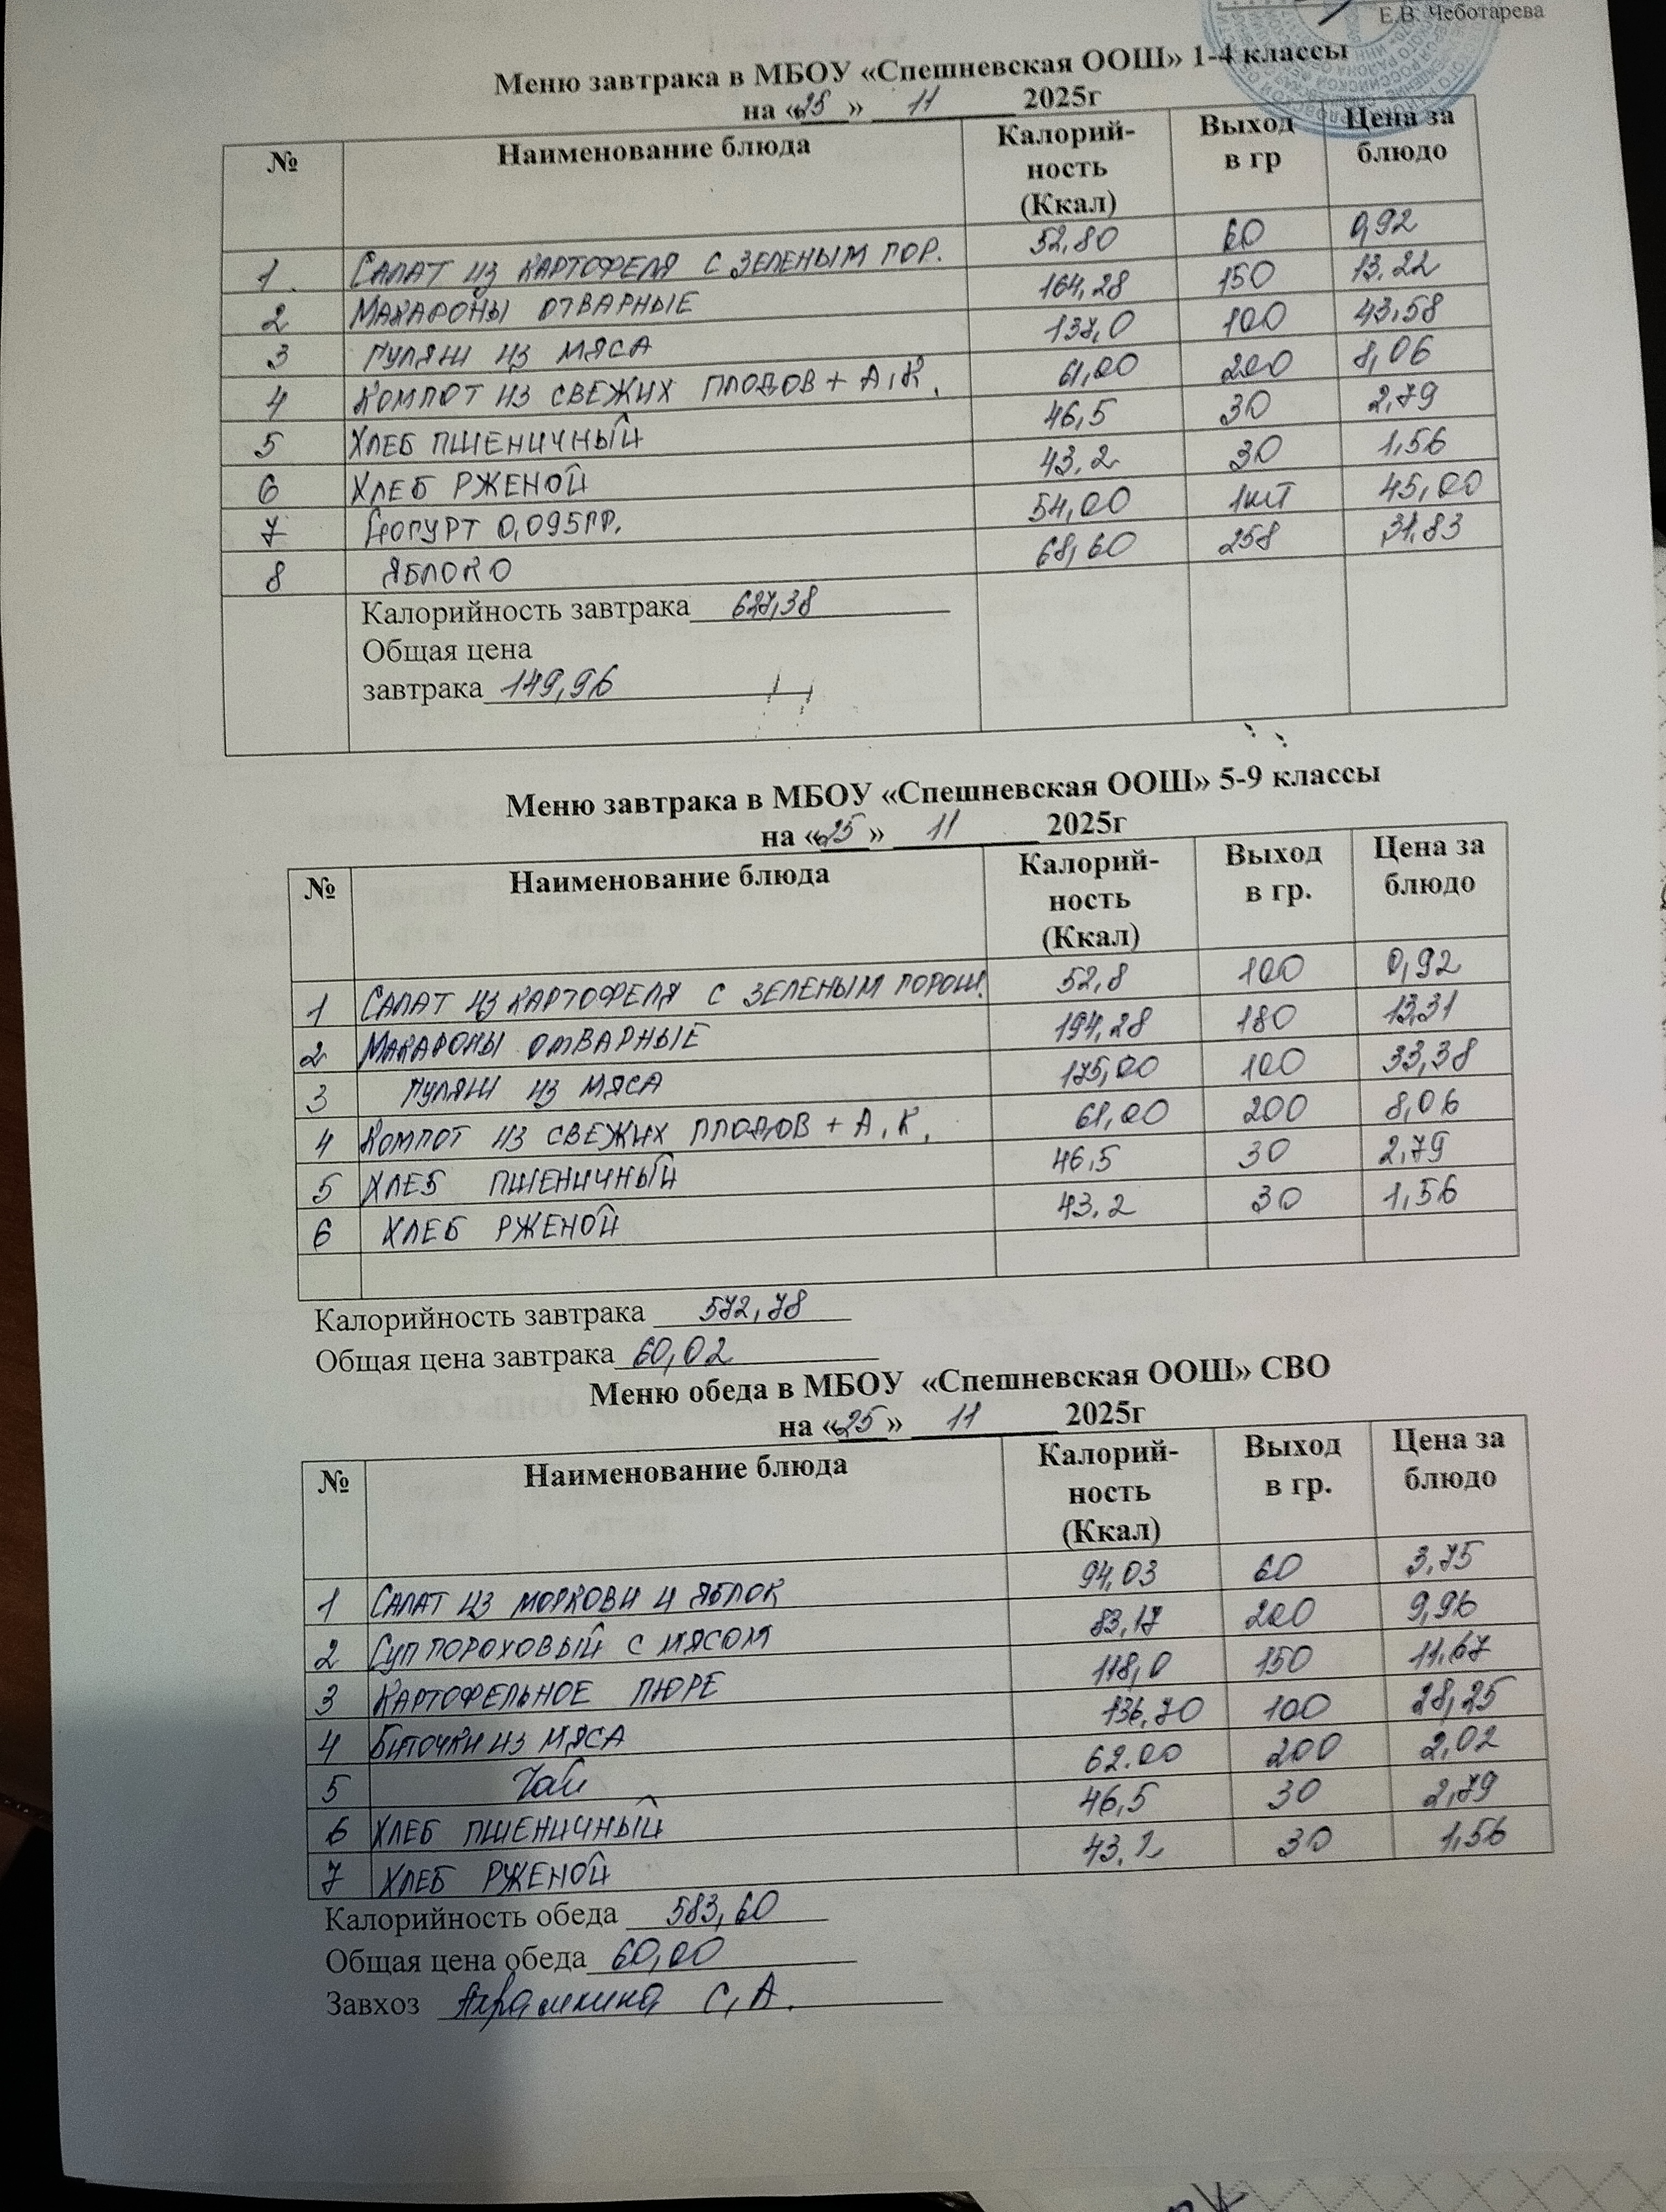 Е.В. Чеботарева
Меню завтрака в МБОУ «Спешневская ООШ» 1-4 классы
на «25» 11 2025г
№ Наименование блюда Калорий-ность (Ккал) Выход в гр Цена за блюдо
1. Салат из картофеля с зеленым гор. 52,80 60 0,92
2 Макароны отварные 164,28 150 13.22
3 Гуляш из мяса 137,0 100 43,58
4 Компот из свежих плодов + А,К. 61,00 200 8,06
5 Хлеб пшеничный 46,5 30 2,79
6 Хлеб рженой 43.2 30 1,56
7 Йогурт 0,095гр. 54,00 1шт 45,00
8 Яблоко 68,60 258 31,83
Калорийность завтрака 627,38
Общая цена
завтрака 149,96
Меню завтрака в МБОУ «Спешневская ООШ» 5-9 классы
на «25» 11 2025г
№ Наименование блюда Калорий-ность (Ккал) Выход в гр. Цена за блюдо
1 Салат из картофеля с зеленым горош. 52,8 100 0,92
2 Макароны отварные 194,28 180 13,31
3 Гуляш из мяса 175,00 100 33,38
4 Компот из свежих плодов + А.К. 61,00 200 8,06
5 Хлеб пшеничный 46,5 30 2,79
6 Хлеб рженой 43.2 30 1,56
Калорийность завтрака 572,78
Общая цена завтрака 60,02
Меню обеда в МБОУ «Спешневская ООШ» СВО
на «25» 11 2025г
№ Наименование блюда Калорий-ность (Ккал) Выход в гр. Цена за блюдо
1 Салат из моркови и яблок 94,03 60 3,75
2 Суп гороховый с мясом 83,17 200 9,96
3 Картофельное пюре 118,0 150 11,67
4 Биточки из мяса 136,70 100 28,25
5 Чай 62.00 200 2,02
6 Хлеб пшеничный 46,5 30 2,79
7 Хлеб рженой 43.2 30 1,56
Калорийность обеда 583,60
Общая цена обеда 60,00
Завхоз С.А.